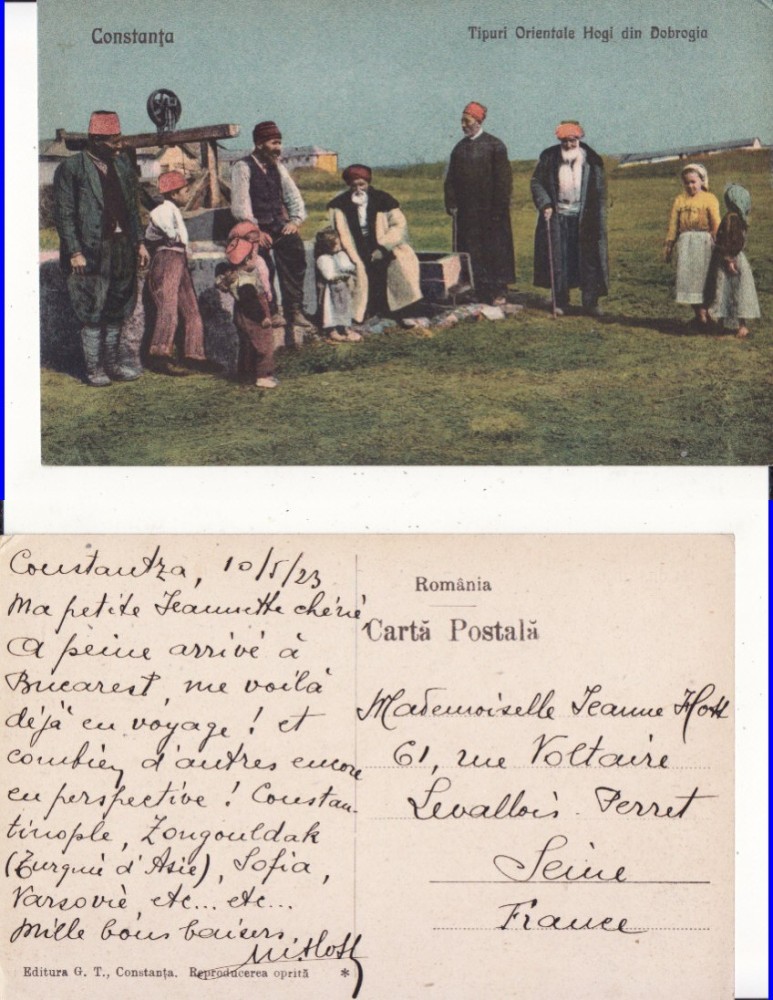 Constanța
Tipuri Orientale Hogi din Dobrogia
Constantza, 10/5/23
Ma petite Jeannette chérie,
A peine arrivé à
Bucarest, me voilà
déjà en voyage! et
combien d'autres encore
en perspective! Constan-
tinople, Zongouldak
(Turquie d'Asie), Sofia,
Varsovie etc... etc...
Mille bons baisers
Editura G. T., Constanța. Reproducerea oprită *
România
Cartă Postală
Mademoiselle Jeanne
61, rue Voltaire
Levallois-Perret
Seine
France